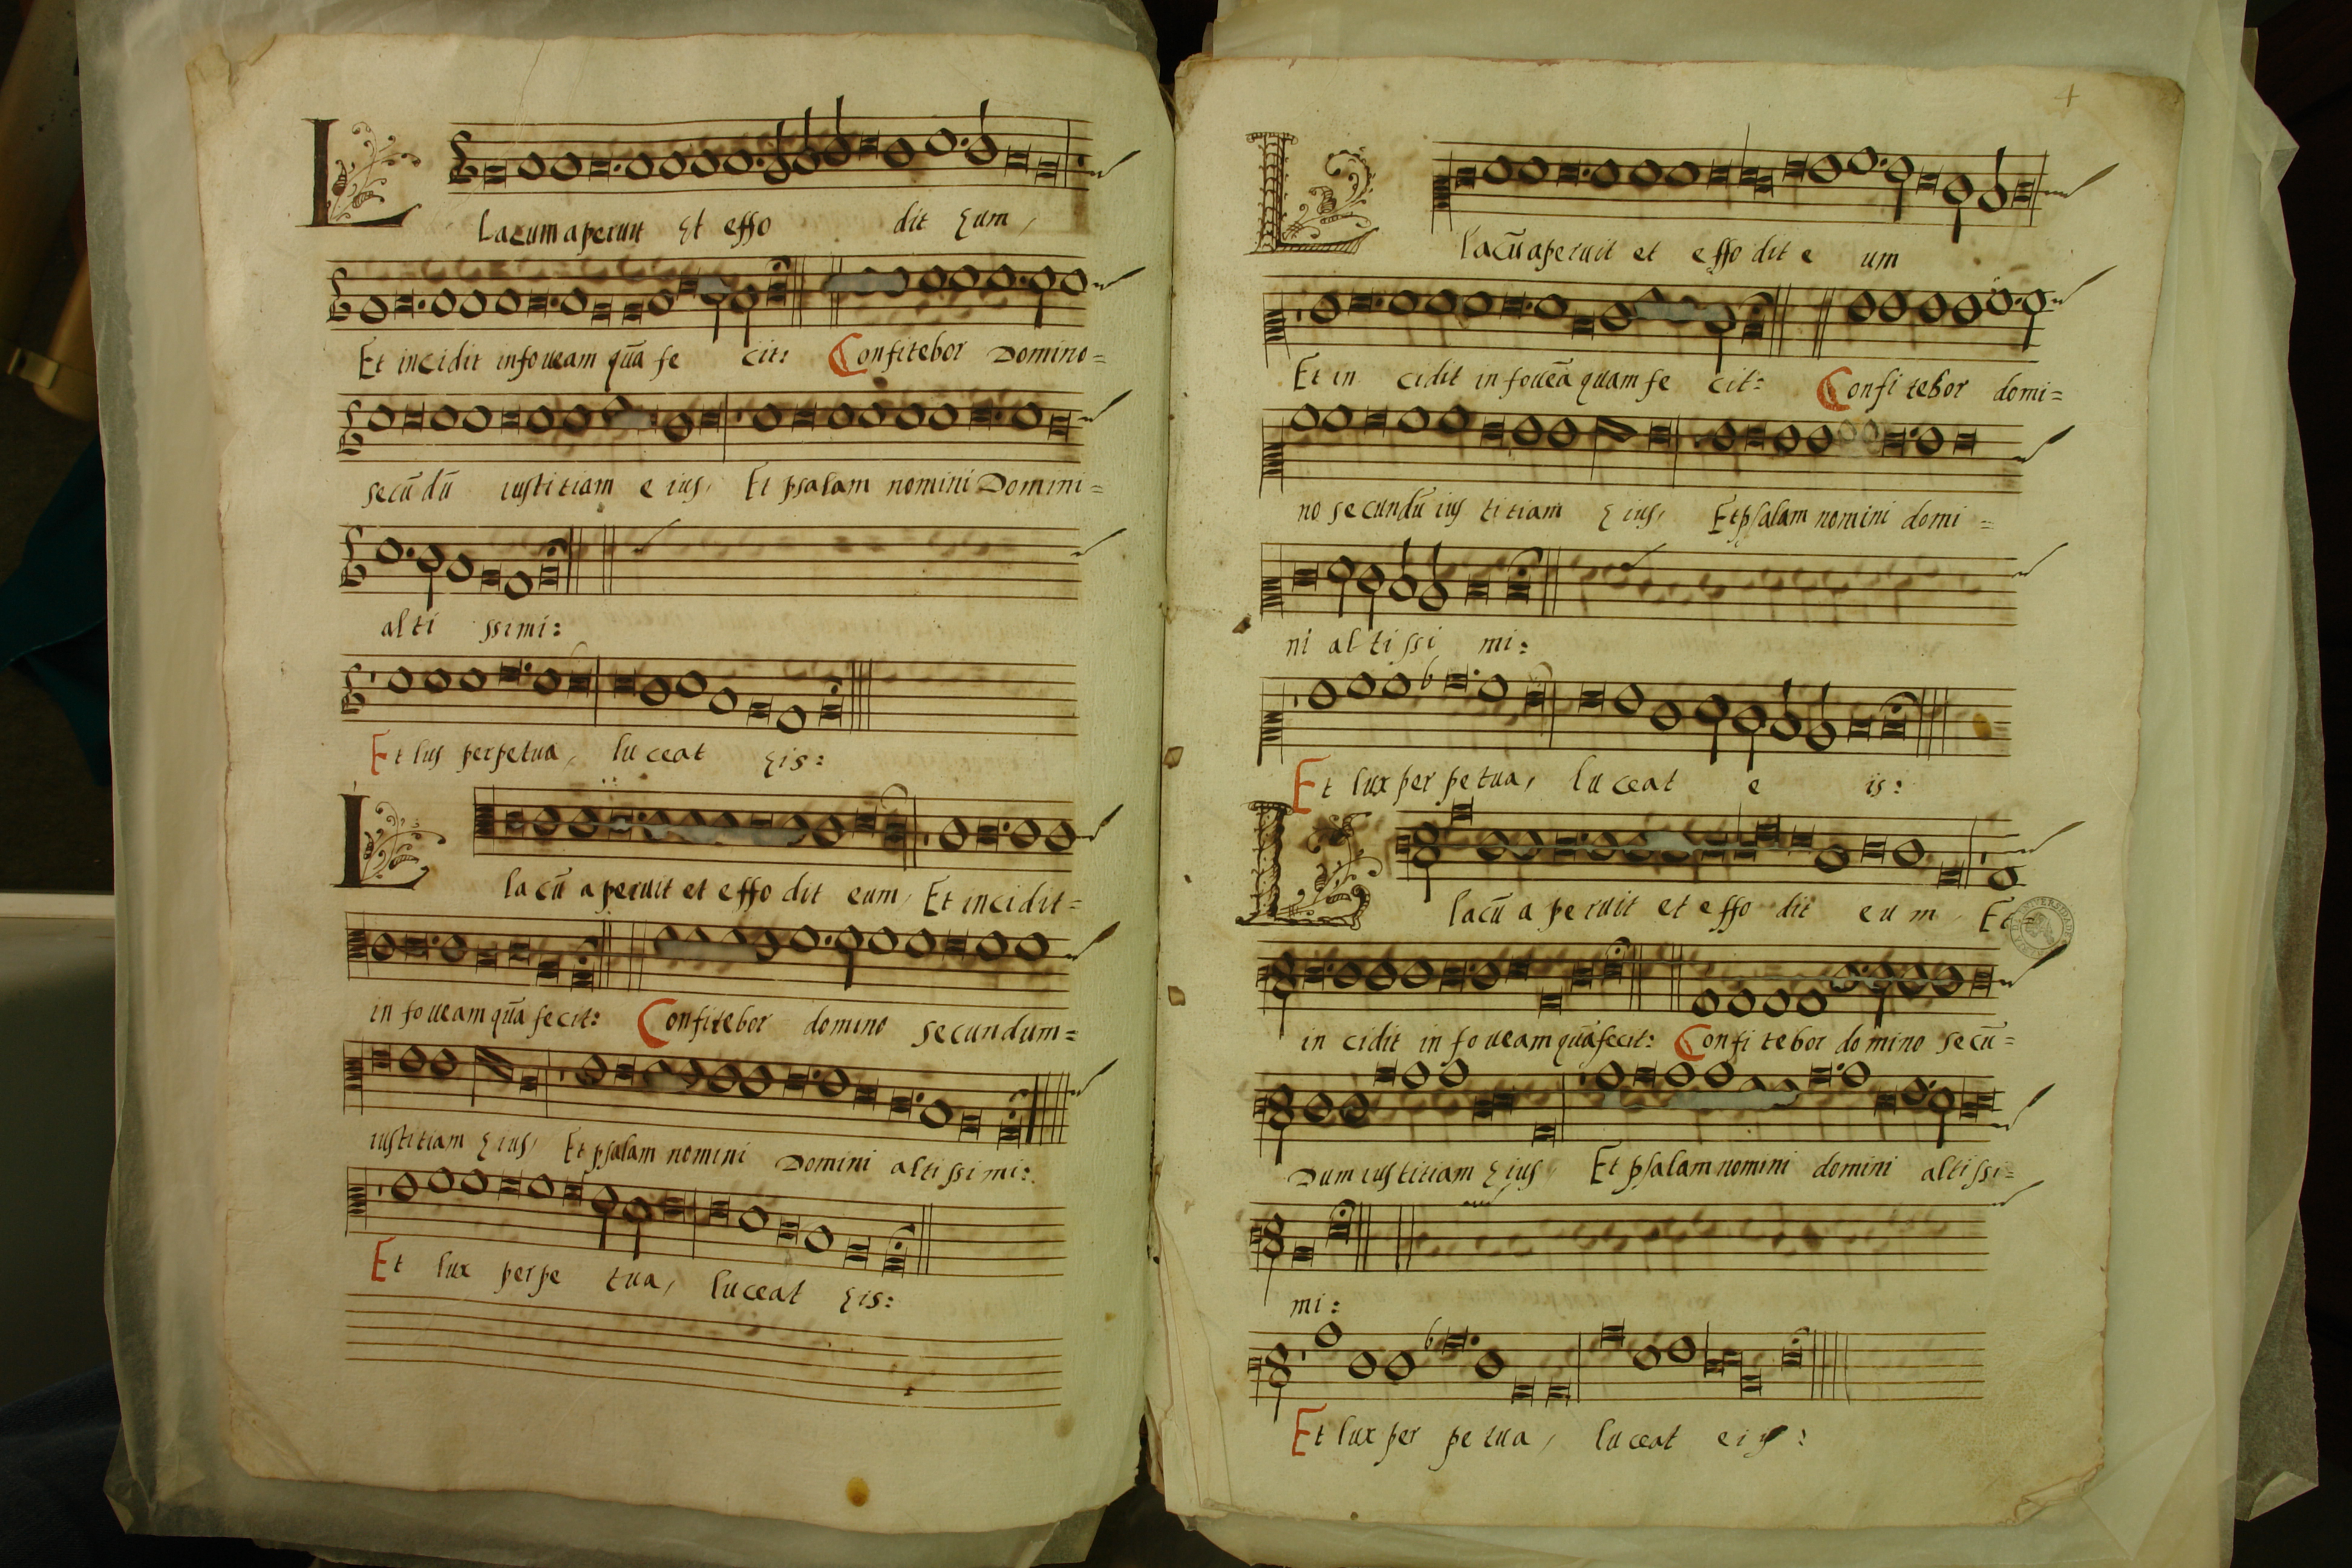 L lacum aperuit Et effo dit Eum,
Et incidit in foueam quā fe cit: Confitebor Domino=
secūdū iustitiam eius, Et psalam nomini Domini=
alti ssimi:
Et lus perpetua, luceat Eis:
L lacū aperuit et effo dit eum, Et incidit=
in foueam quā fecit: Confitebor domino secundum=
iustitiam Eius, Et psalam nomini Domini altissimi:
Et lux perpe tua, luceat Eis:
L lacū aperuit et effo dit e um
Et in cidit in foueā quam fe cit: Confi tebor domi=
no secundū ius titiam Eius, Et psalam nomini domi=
ni altissi mi:
Et lux per petua, luceat e is:
L lacū a peruit et effo dit eum Et
in cidit in foueam quā fecit: Confi tebor domino secū=
Dum iustitiam Eius, Et psalam nomini domini altissi=
mi:
Et lux per petua, luceat eis: